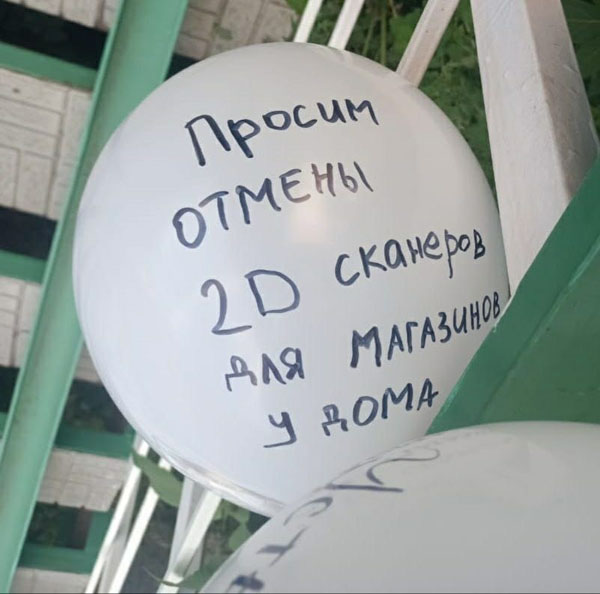 Просим
ОТМЕНЫ
2D сканеров
для МАГАЗИНОВ
У ДОМА